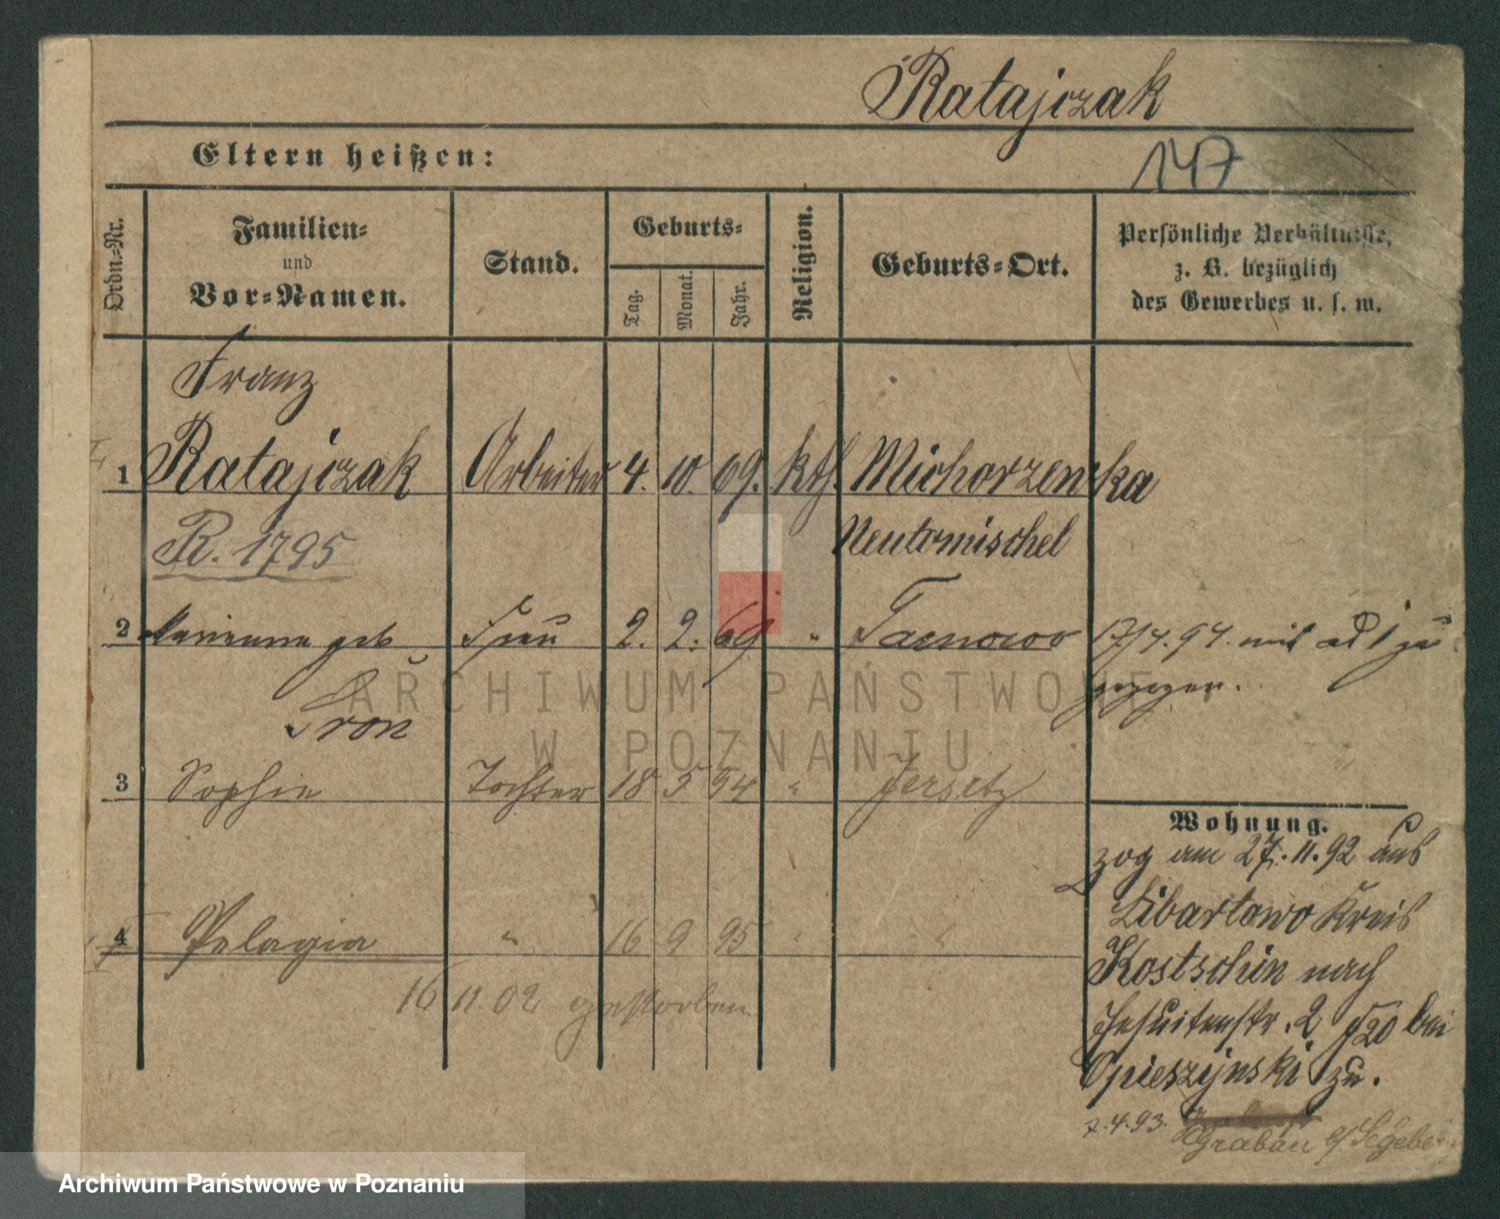 Ratajczak
Eltern heißen:
147
Ordn.-Nr.
Familien-
und
Vor-Namen.
Stand.
Geburts-
Tag.
Monat.
Jahr.
Religion.
Geburts-Ort.
Persönliche Verhältnisse,
z. B. bezüglich
des Gewerbes u. s. w.
Franz
1 Ratajczak Arbeiter 4. 10. 69. kth. Michorzewka
R. 1795 Neutomischel
2 Marianna geb Frau 2. 2. 69 " Tarnowo 17/4.94. mit ad 1 zu
gezogen.
Fron
3 Sophie Tochter 18 5 94 " Jersitz
Wohnung.
zog am 27.11.92 aus
Libartowo Kreis
4 Pelagia " 16 9 95 " "
Kostschin nach
16 11.02 gestorben
Jesuitenstr. 2 bei
Opieszynski zu.
7.4.93. Grabau
ARCHIWUM PAŃSTWOWE
W POZNANIU
Archiwum Państwowe w Poznaniu